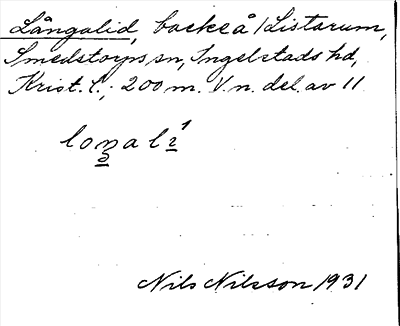 Långalid, backe å Listarum,
Smedstorps sn, Ingelstads hd,
Krist. l.; 200 m. V. n. del. av 11
Nils Nilsson 1931